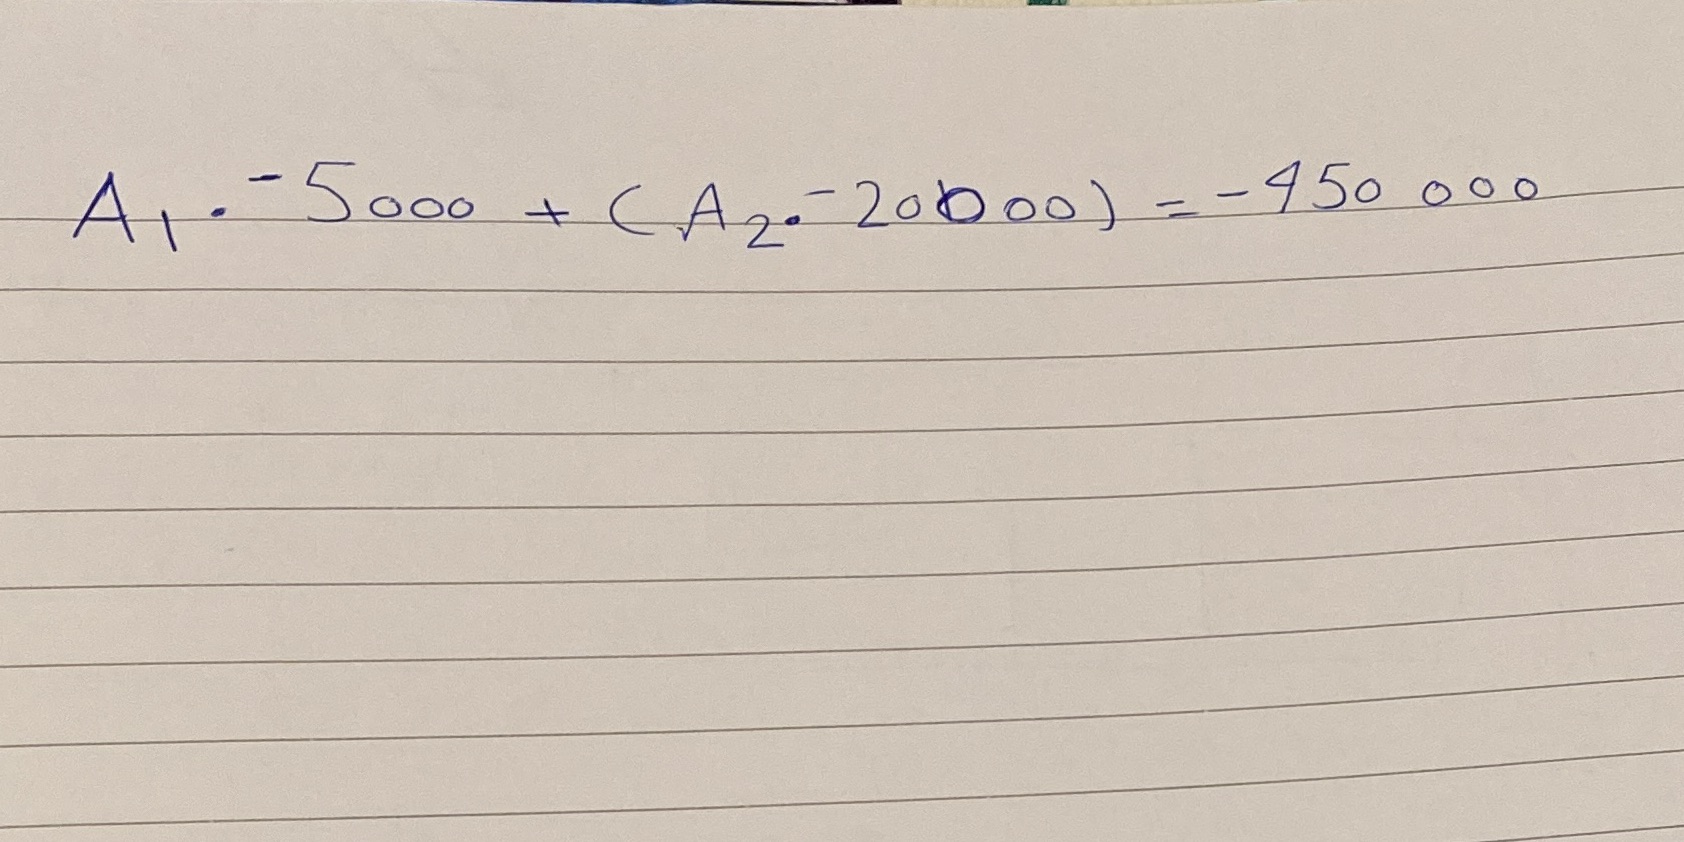 A₁ · -5000 + (A₂ · -20000) = -450 000